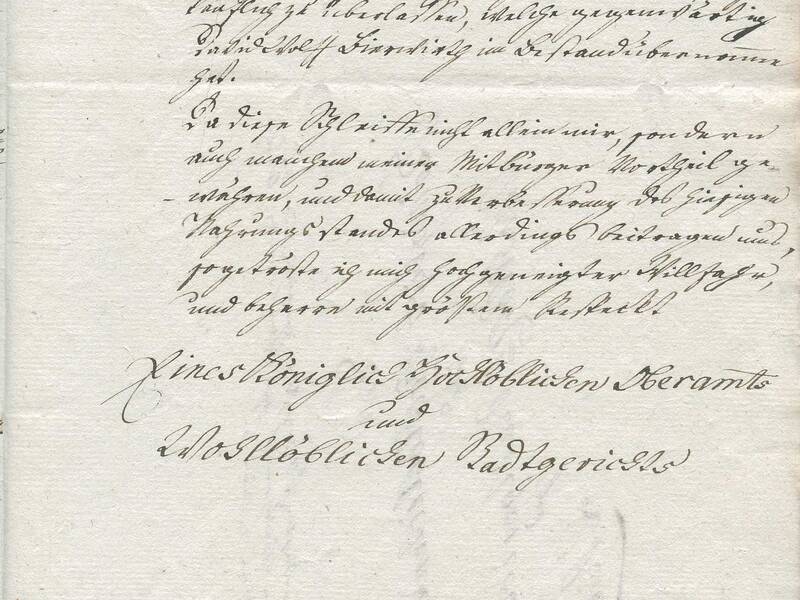 käuflich zu überlassen, welche gegenwärtig
David Wolff Bierwirth im Bestand übernomme
hat.
Da diese Schleiffe nicht allein mir, sondern
auch manchem meiner Mitbürger Vortheil ge-
- währen, und damit zu Verbesserung des hiesigen
Nahrungsstandes allerdings beitragen muß,
so getröste ich mich hochgeneigter Willfahr,
und beharre mit größtem Respeckt
Eines Königlich Hochlöblichen Oberamts
und
Wohllöblichen Stadtgerichts